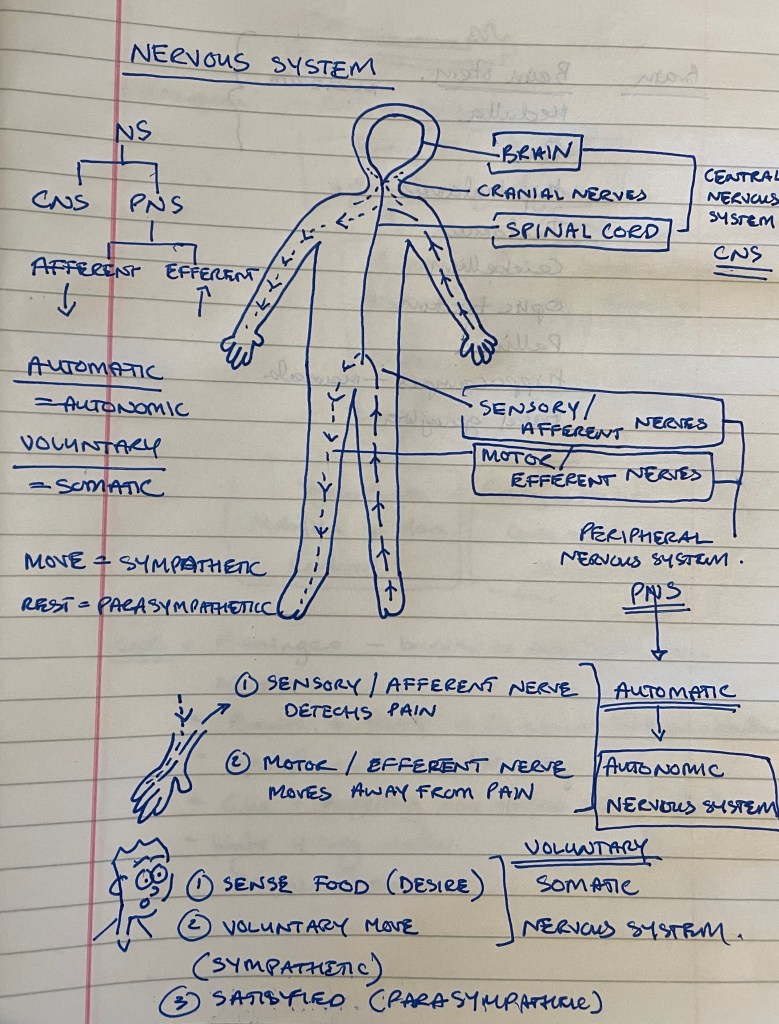 NERVOUS SYSTEM
NS
CNS PNS
AFFERENT EFFERENT
BRAIN
CRANIAL NERVES
SPINAL CORD
CENTRAL
NERVOUS
SYSTEM
CNS
AUTOMATIC
= AUTONOMIC
VOLUNTARY
= SOMATIC
MOVE = SYMPATHETIC
REST = PARASYMPATHETIC
SENSORY /
AFFERENT NERVES
MOTOR /
EFFERENT NERVES
PERIPHERAL
NERVOUS SYSTEM.
PNS
① SENSORY / AFFERENT NERVE
DETECHS PAIN
② MOTOR / EFFERENT NERVE
MOVES AWAY FROM PAIN
AUTOMATIC
AUTONOMIC
NERVOUS SYSTEM
① SENSE FOOD (DESIRE)
② VOLUNTARY MOVE
(SYMPATHETIC)
③ SATISFIED (PARASYMPATHETIC)
VOLUNTARY
SOMATIC
NERVOUS SYSTEM.